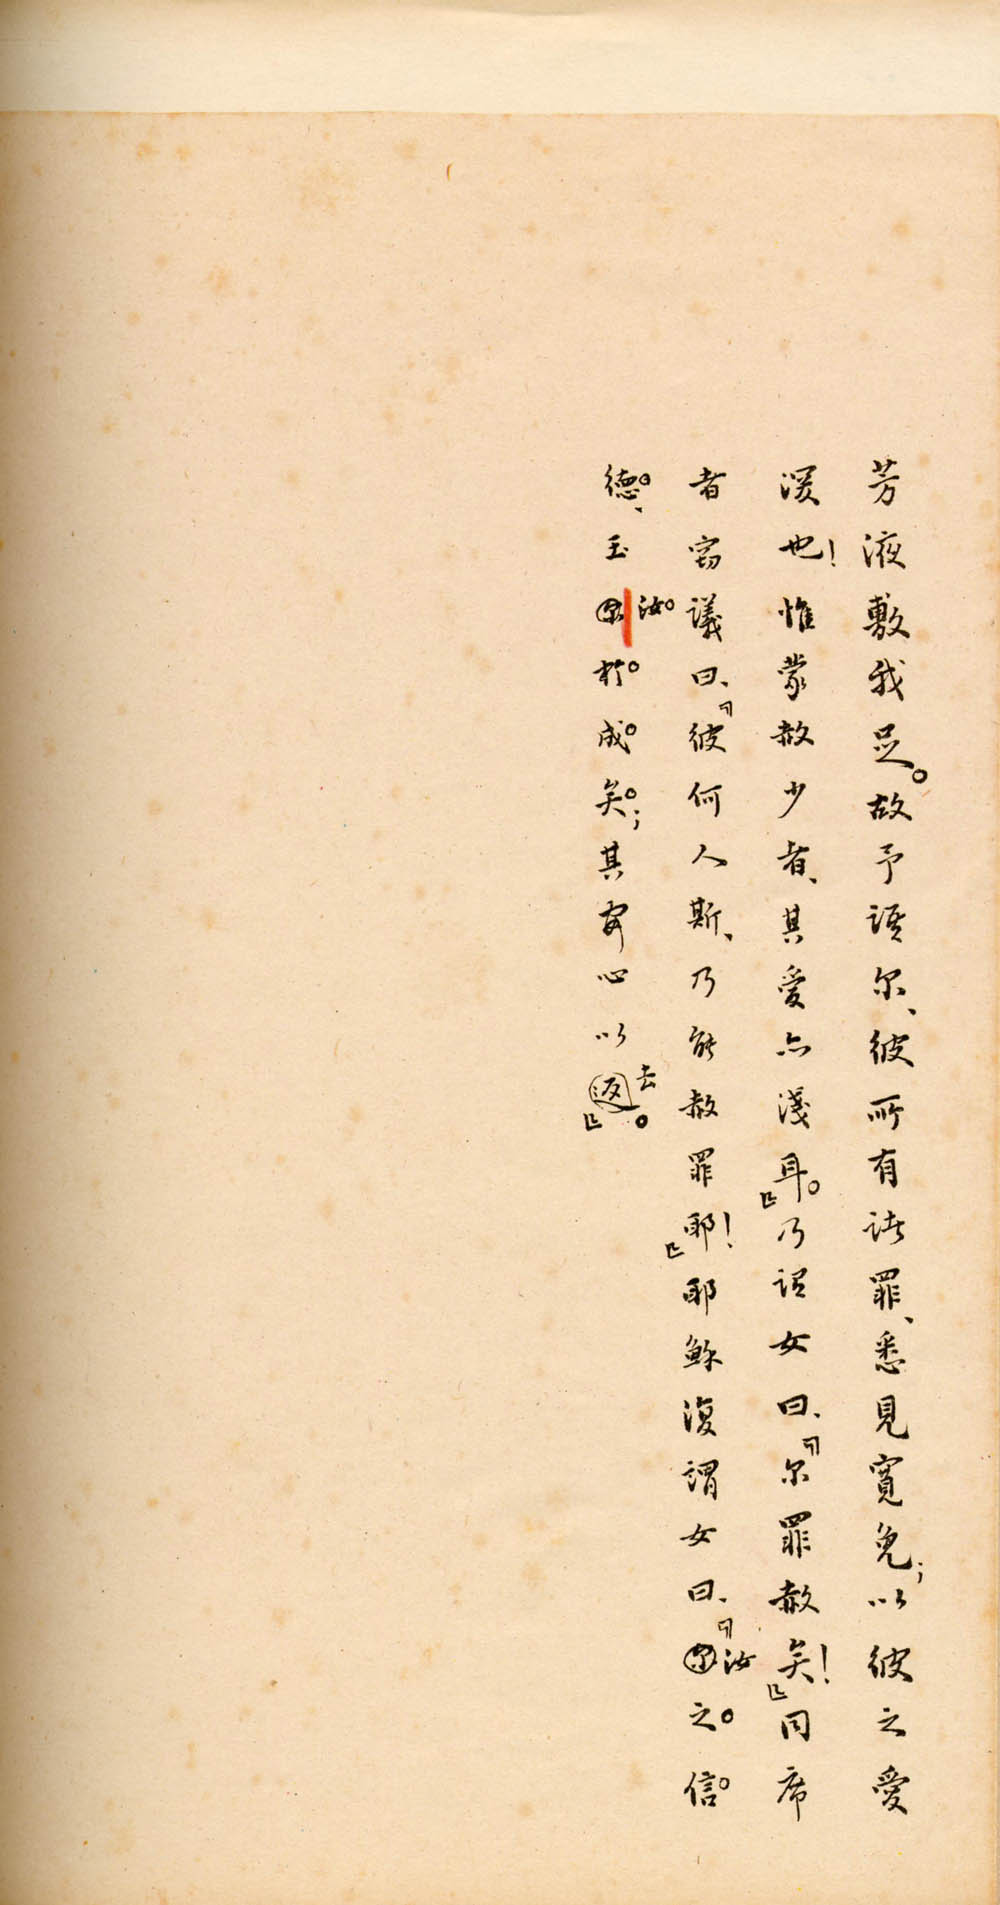 芳液敷我足。故予語尔、彼所有諸罪、悉見寬免；以彼之愛
深也！惟蒙赦少者、其愛亦淺耳。』乃謂女曰、『尔罪赦矣！』同席
者竊議曰、『彼何人斯、乃能赦罪耶！』耶穌復謂女曰、『汝之信
德、玉汝於成矣；其安心以去。』